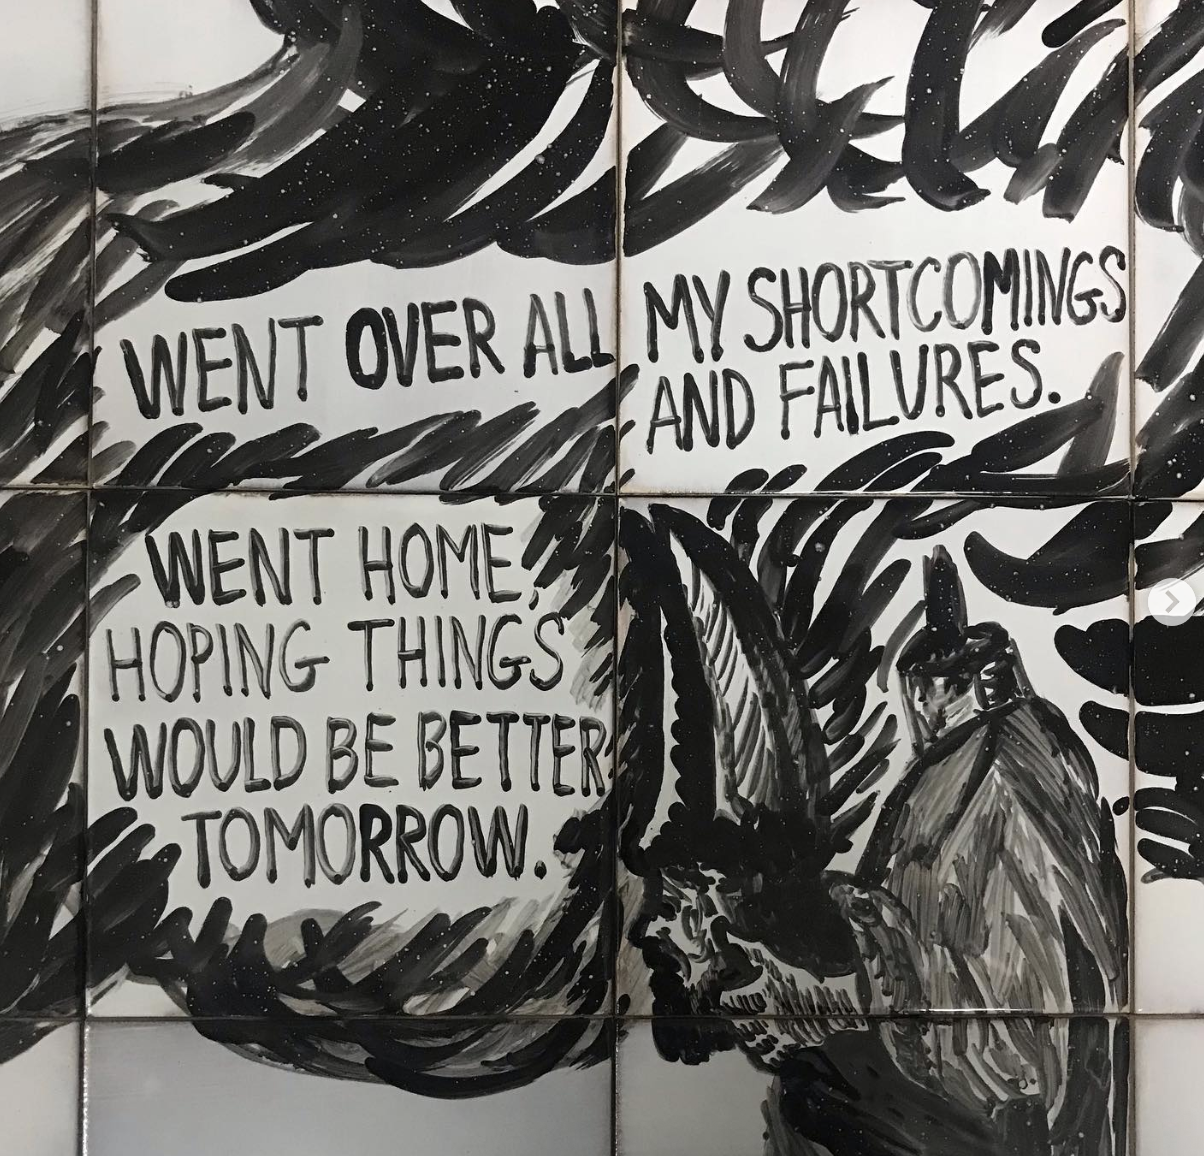 WENT OVER ALL MY SHORTCOMINGS
AND FAILURES.
WENT HOME,
HOPING THINGS
WOULD BE BETTER
TOMORROW.